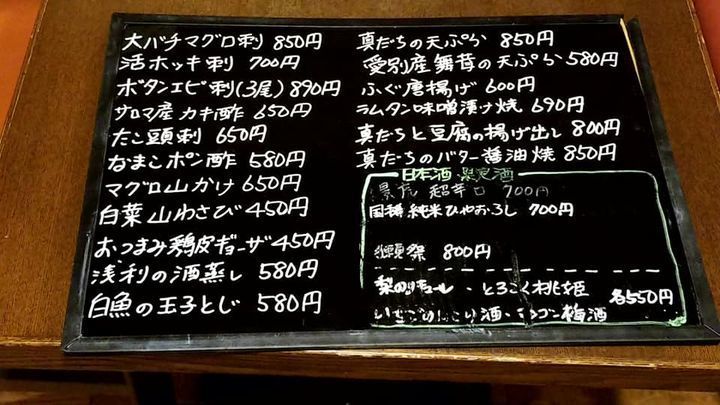 大バチマグロ刺 850円
活ホッキ刺 700円
ボタンエビ刺(3尾) 890円
サロマ産 カキ酢 650円
たこ頭刺 650円
なまこポン酢 580円
マグロ山かけ 650円
白菜山わさび 450円
おつまみ鶏皮ギョーザ 450円
浅利の酒蒸し 580円
白魚の玉子とじ 580円
真だちの天ぷら 850円
愛別産 舞茸の天ぷら 580円
ふぐ唐揚げ 600円
ラムタン味噌漬け焼 690円
真だちと豆腐の揚げ出し 800円
真だちのバター醤油焼 850円
日本酒 限定酒
超辛口 700円
国稀 純米ひやおろし 700円
獺祭 800円
梨のリキュール・とろこく桃姫
各550円
いちごにごり酒・マンゴー梅酒